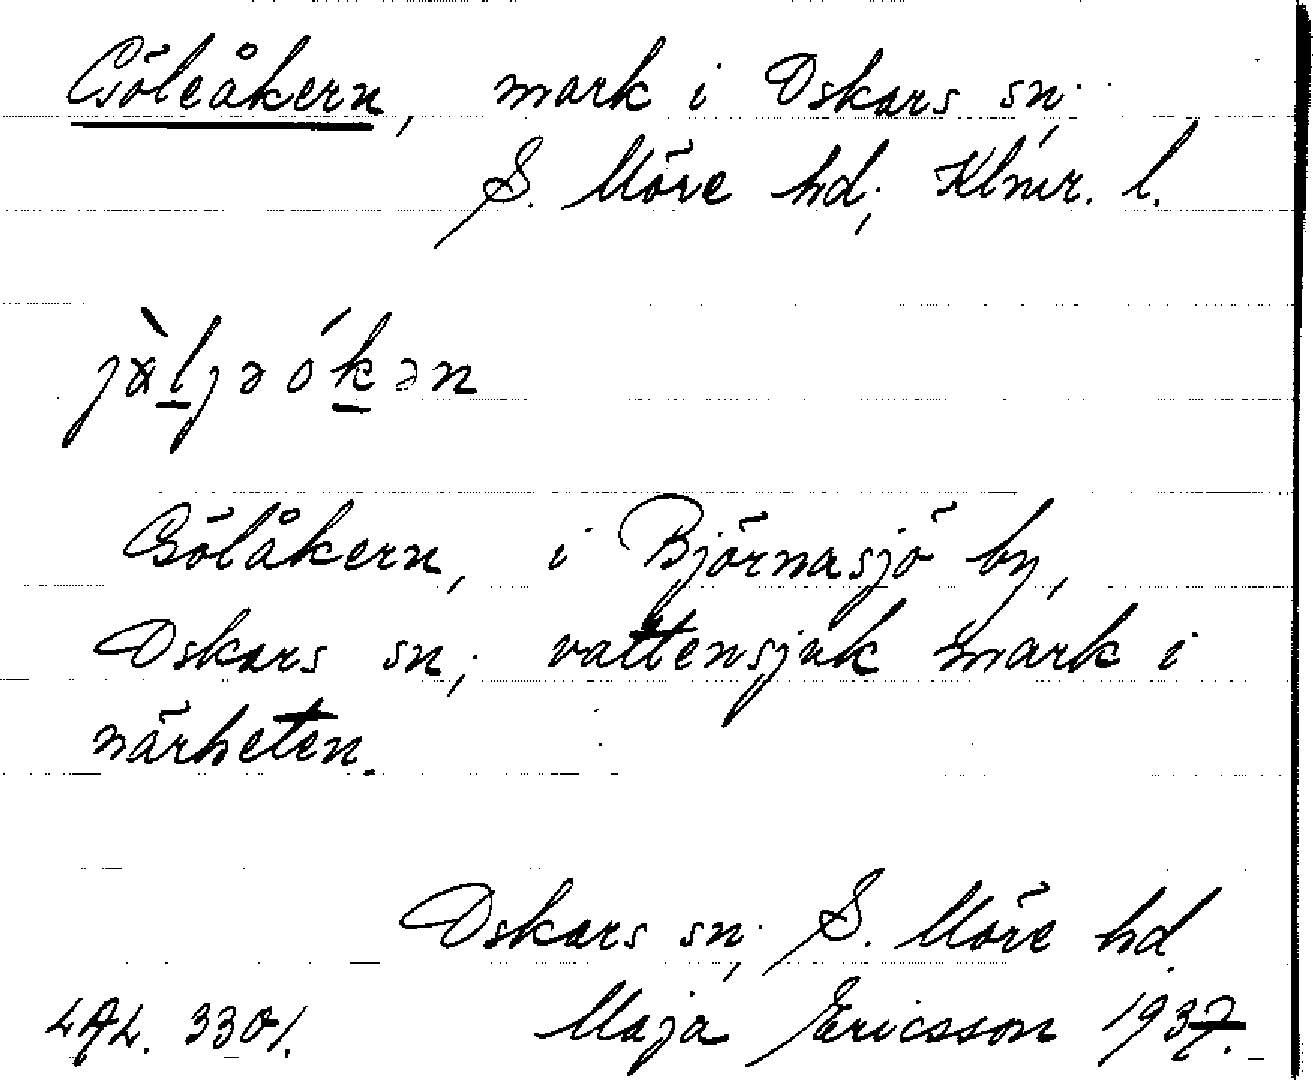 Göleåkern, mark i Oskars sn.
S. Möre hd, Klmr. l.
Gölåkern, i Björnasjö by,
Oskars sn, vattensjuk mark i
närheten.
Oskars sn, S. Möre hd.
LAL. 3301. Maja Ericsson 1937.